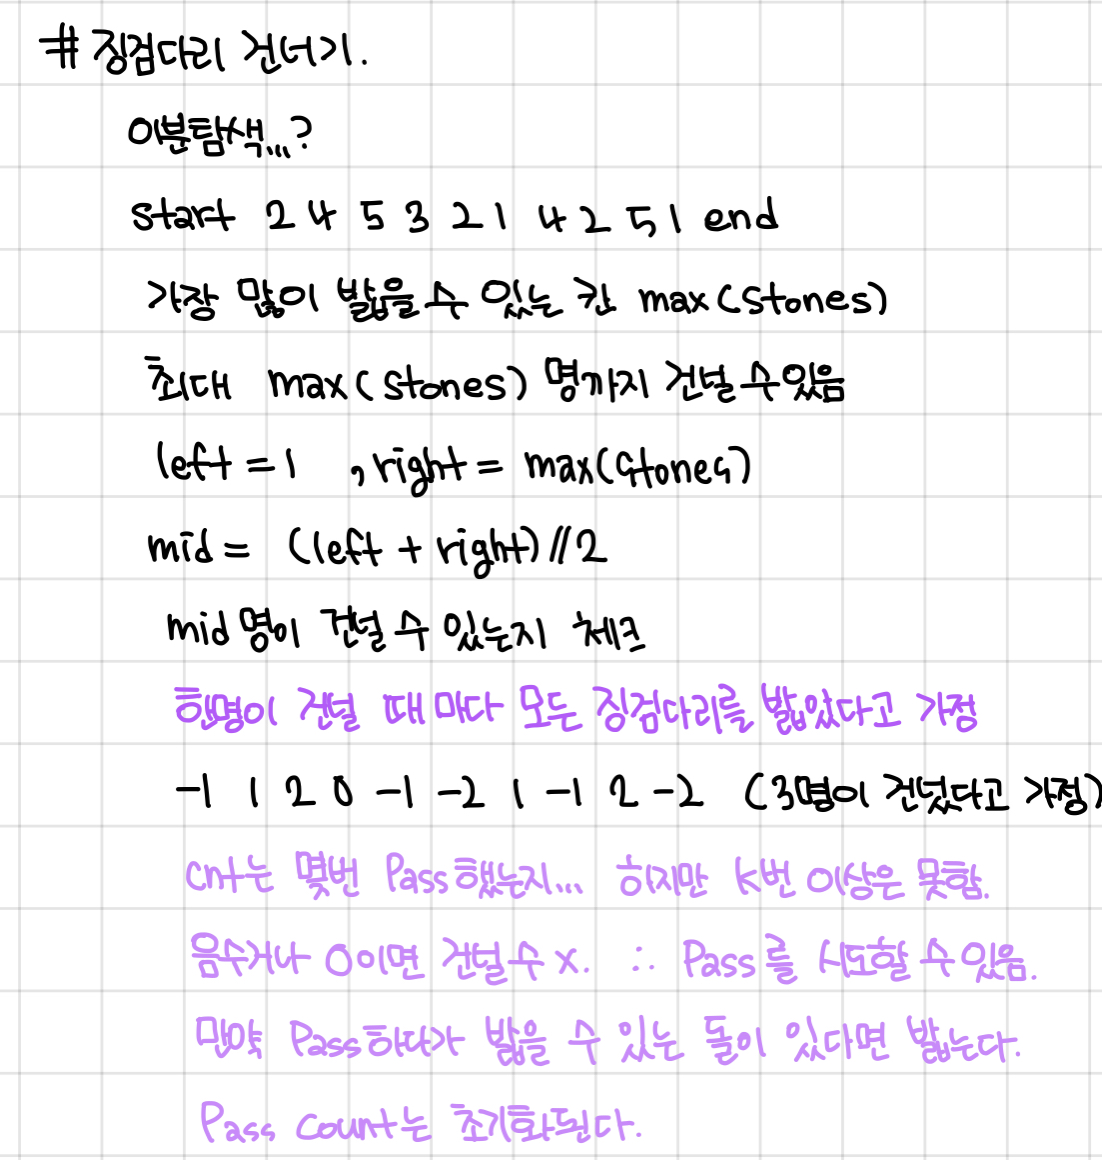 # 징검다리 건너기.
이분탐색...?
start 2 4 5 3 2 1 4 2 5 1 end
가장 많이 밟을 수 있는 칸 max(stones)
최대 max(stones) 명까지 건널 수 있음
left = 1 , right = max(stones)
mid = (left + right)//2
mid 명이 건널 수 있는지 체크
한명이 건널 때 마다 모든 징검다리를 밟았다고 가정
-1 1 2 0 -1 -2 1 -1 2 -2 (3명이 건넜다고 가정)
cnt는 몇번 Pass했는지... 하지만 k번 이상은 못함.
음수거나 0이면 건널 수 x. ∴ Pass를 시도할 수 있음.
만약 Pass하다가 밟을 수 있는 돌이 있다면 밟는다.
Pass count는 초기화된다.